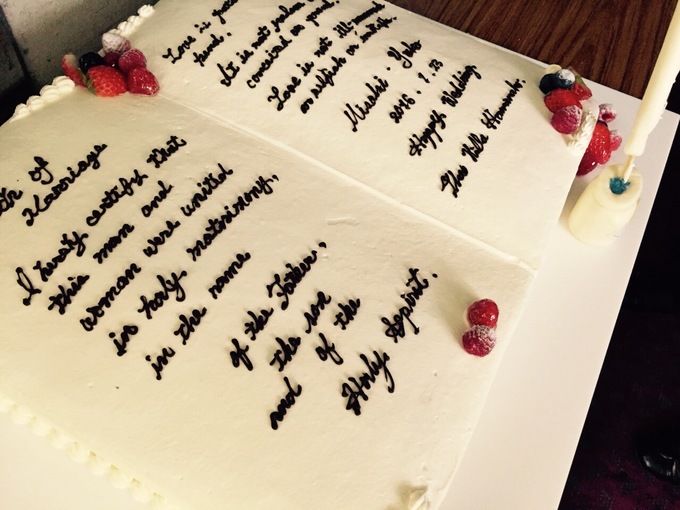 of
Marriage
I hereby certify that
this man and
woman were united
in holy matrimony,
in the name
of the Father,
the son
and of the
Holy Spirit.
Love is
kind.
It is not jealous
conceited or proud.
Love is not ill-mannered
or selfish or
Misehi . Yuko
2016 . 1 . 23
Happy Wedding.
The Villa